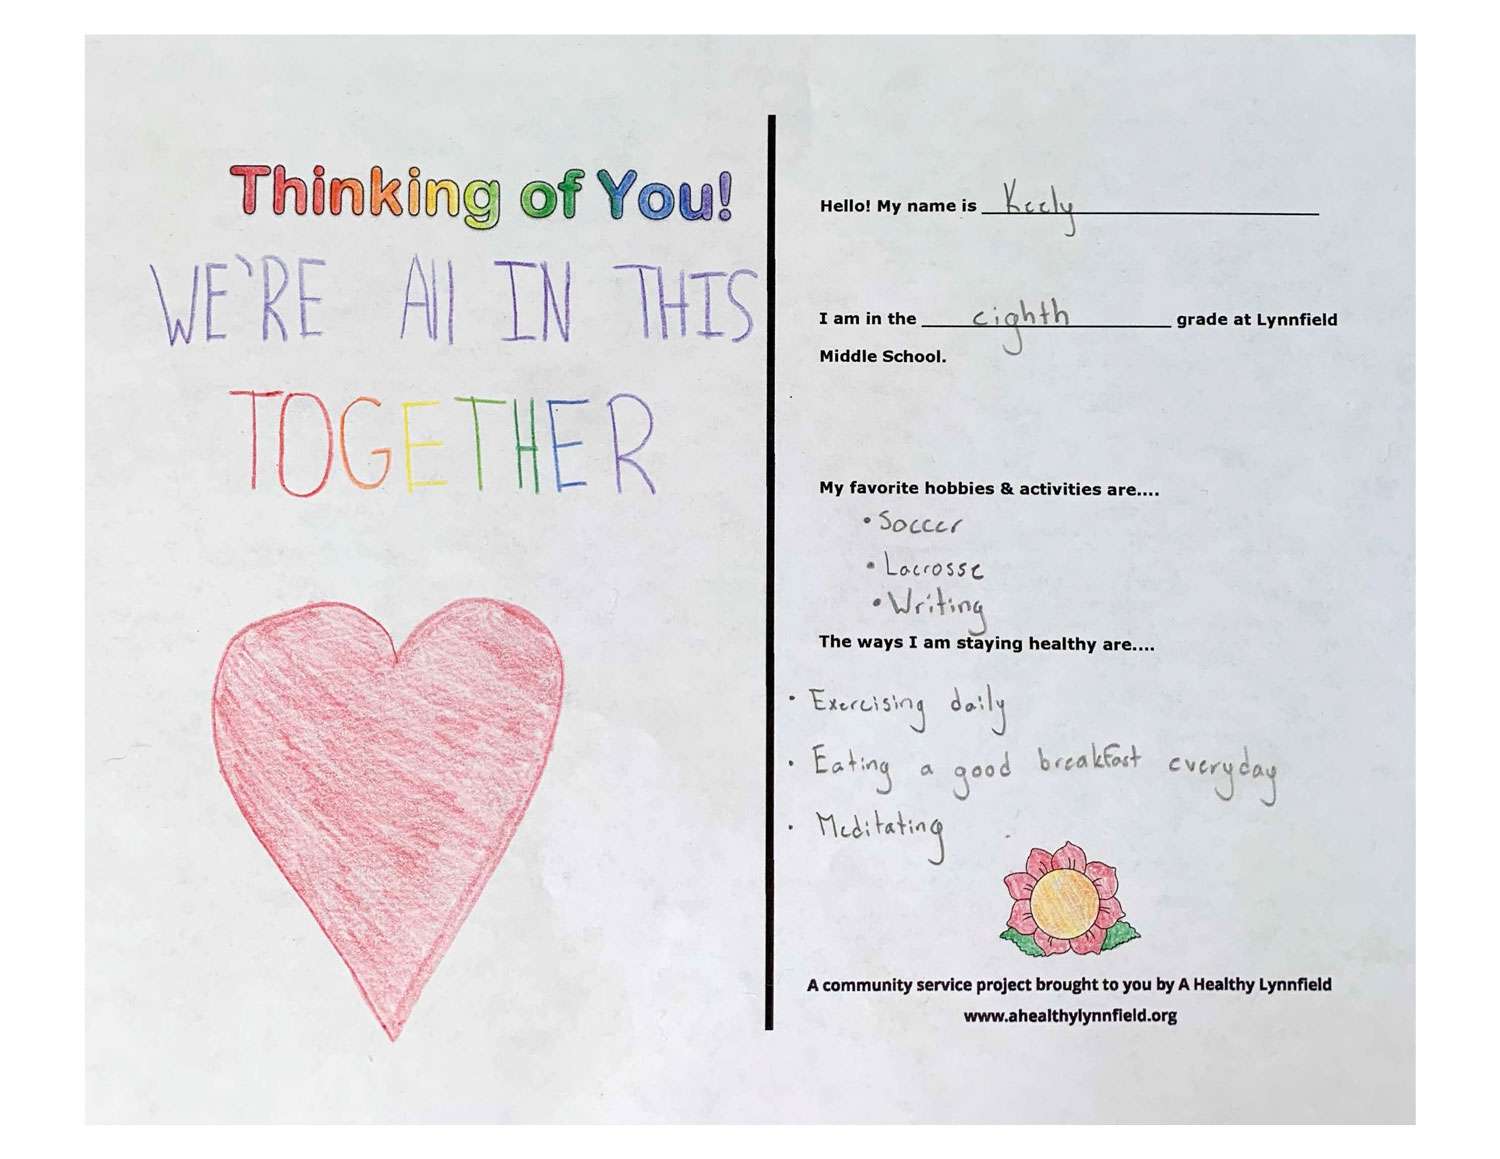 Thinking of You!
WE'RE All IN THIS
TOGETHER
Hello! My name is Keely
I am in the eighth grade at Lynnfield
Middle School.
My favorite hobbies & activities are....
• Soccer
• Lacrosse
• Writing
The ways I am staying healthy are....
• Exercising daily
• Eating a good breakfast everyday
• Meditating
A community service project brought to you by A Healthy Lynnfield
www.ahealthylynnfield.org